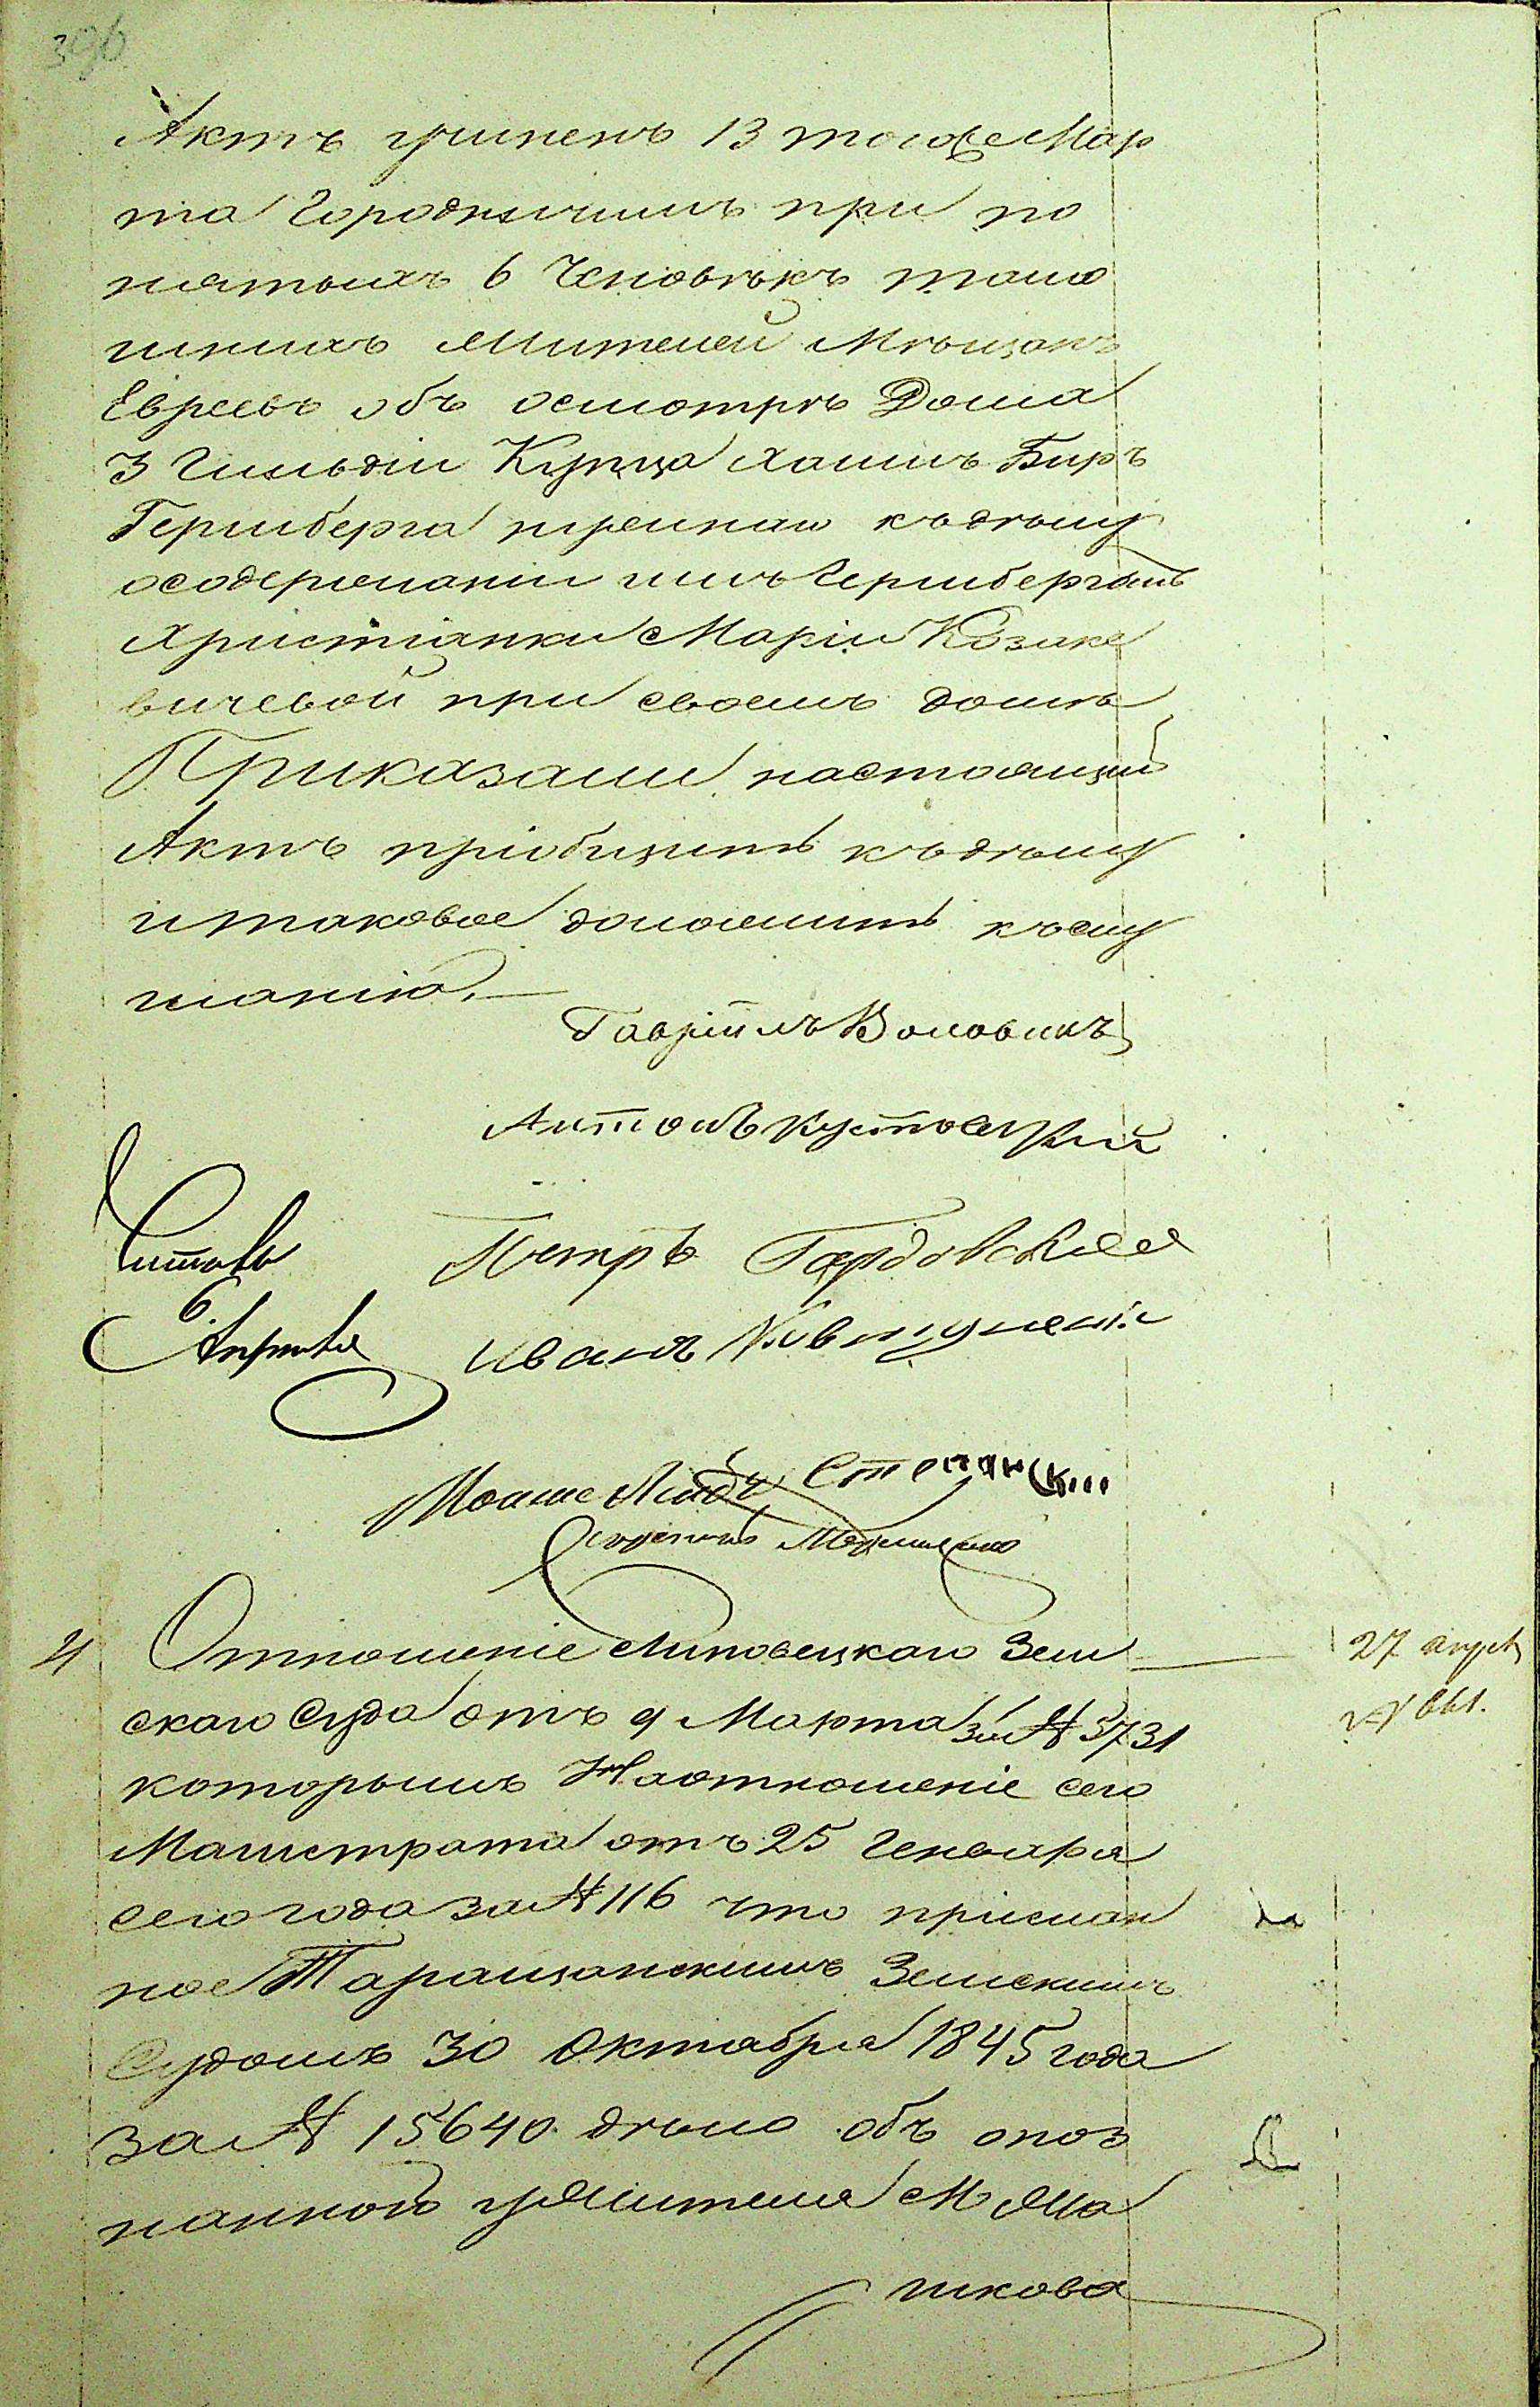 396
Актъ учиненъ 13 тогоже Мар
та Городничимъ при по
нятыхъ 6 Человѣкъ тамо
шнихъ Жителей Мѣщанъ
Евреевъ объ осмотрѣ Дома
3 Гильдіи Купца Хаимъ Биръ
Гершберга къдѣлу
осодержаніи имъ Гершбергомъ
Христіанки Маріи Козаке
вичевой при своемъ домѣ
Приказали настоящій
Актъ пріобщить къдѣлу
итаковое доложить къслу
шанію.
Гавріилъ Воловикъ
Антонъ
Читалъ Петръ
6 Апрѣля Иванъ
Мошко
4 Отношеніе Липовецкаго Зем
скаго Суда отъ 9 Марта за № 5731
которымъ Наотношеніе сего
Магистрата отъ 25 Генваря
сего года за № 116 что прислан
ное Таращанскимъ Земскимъ
Судомъ 30 Октября 1845 года
за № 15640 дѣло объ опоз
нанной уЖителя М Жа
шкова
27